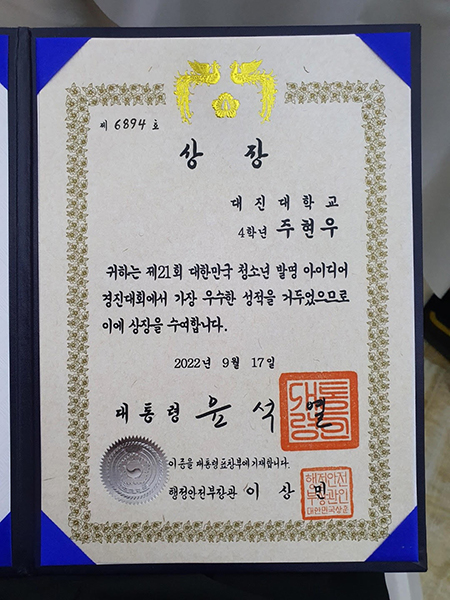 제 6894 호
상장
대진대학교
4학년 주현우
귀하는 제21회 대한민국 청소년 발명 아이디어
경진대회에서 가장 우수한 성적을 거두었으므로
이에 상장을 수여합니다.
2022년 9월 17일
대통령 윤석열
이 증을 대통령표창부에 기재합니다.
행정안전부장관 이상민